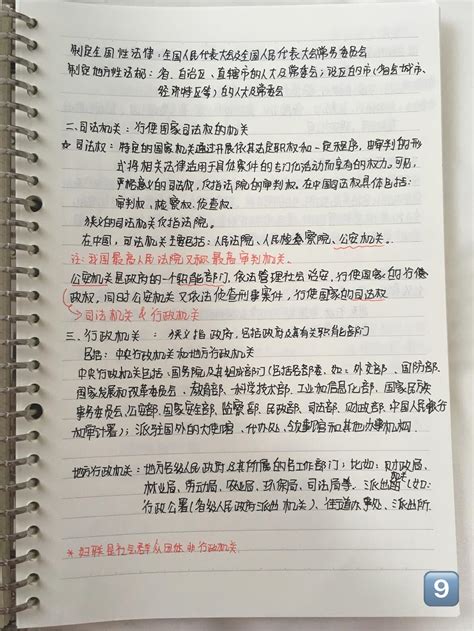 制定全国性法律：全国人民代表大会及全国人民代表大会常务委员会
制定地方性法规：省、自治区、直辖市的人大及常委会；设区的市(省会城市、
经济特区等)的人大及常委会
二、司法机关：行使国家司法权的机关
☆ 司法权：特定的国家机关通过开展依其法定职权和一定程序，由审判的形
式将相关法律适用于具体案件的专门化活动而享有的权力。可见，
严格意义的司法权，仅指法院的审判权。在中国司法权具体包括：
审判权、检察权、侦查权.
狭义的司法机关仅指法院。
在中国，司法机关主要包括：人民法院、人民检察院、公安机关。
注：我国最高人民法院又称最高审判机关.
公安机关是政府的一个职能部门，依法管理社会治安，行使国家的行使
政权，同时公安机关又依法侦查刑事案件，行使国家的司法权
→ 司法机关 & 行政机关
三、行政机关： 狭义指政府，包括政府及其有关职能部门
包括：中央行政机关和地方行政机关
中央行政机关：国务院及其组成部门(包括各部委、如：外交部、国防部、
国家发展和改革委员会、教育部、科学技术部、工业和信息化部、国家民族
事务委员会、公安部、国家安全部、监察部、民政部、司法部、财政部、中国人民银行
和审计署)；派驻国外的大使馆、代办处、领事馆和其他办事机构.
地方行政机关：地方各级人民政府及其所属的各工作部门；比如：财政局、
林业局、劳动局、农业局、环保局、司法局等。派出机关(如：
行政公署(省级人民政府派出机关)、街道办事处、派出所.
* 妇联是社会群众团体 非行政机关.
9